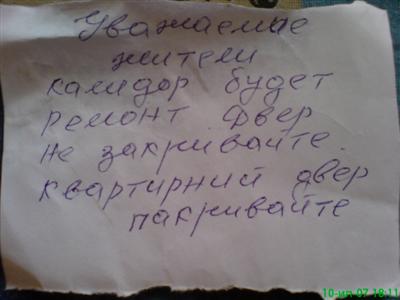 Уважаемые
жители
калидор будет
ремонт двер
не закривайте.
квартирний двер
пакривайте
10-июл-07 18:11